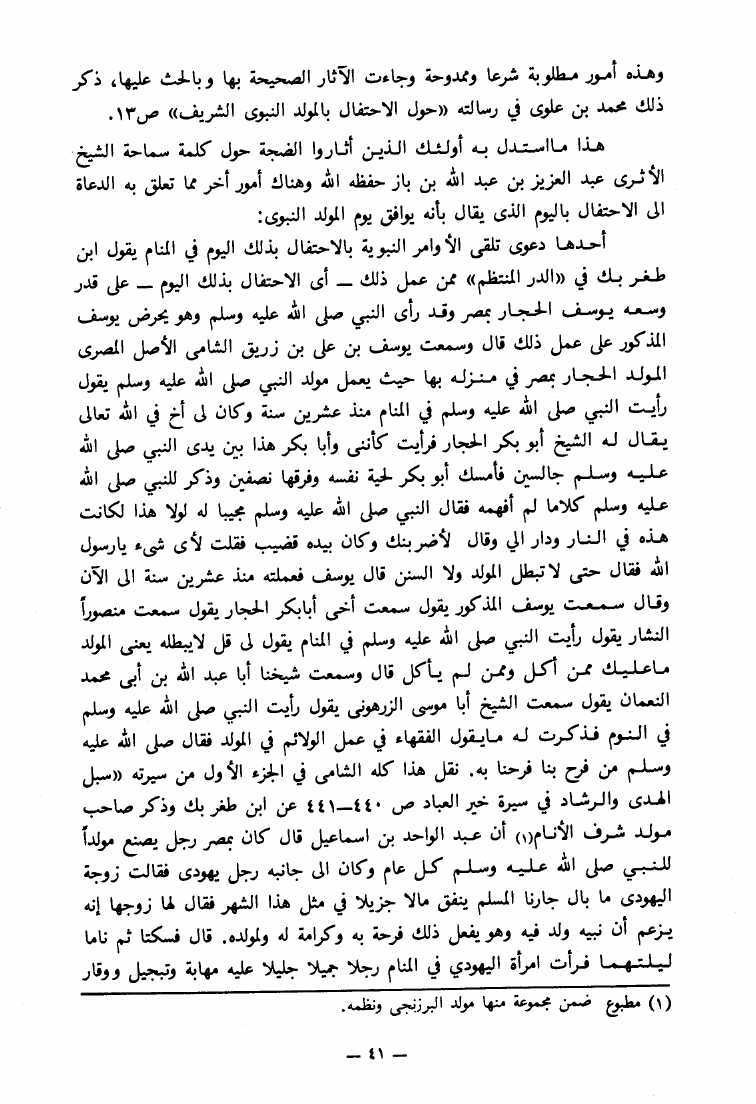 وهذه أمور مطلوبة شرعا وممدوحة وجاءت الآثار الصحيحة بها وبالحث عليها، ذكر
ذلك محمد بن علوى في رسالته «حول الاحتفال بالمولد النبوى الشريف» ص١٣.
هذا مااستدل به أولئك الذين أثاروا الضجة حول كلمة سماحة الشيخ
الأثرى عبد العزيز بن عبد الله بن باز حفظه الله وهناك أمور أخر مما تعلق به الدعاة
الى الاحتفال باليوم الذى يقال بأنه يوافق يوم المولد النبوى:
أحدها دعوى تلقى الأوامر النبوية بالاحتفال بذلك اليوم في المنام يقول ابن
طغر بك في «الدر المنتظم» ممن عمل ذلك — أى الاحتفال بذلك اليوم — على قدر
وسعه يوسف الحجار بمصر وقد رأى النبي صلى الله عليه وسلم وهو يحرض يوسف
المذكور على عمل ذلك قال وسمعت يوسف بن على بن زريق الشامى الأصل المصرى
المولد الحجار بمصر في منزله بها حيث يعمل مولد النبي صلى الله عليه وسلم يقول
رأيت النبي صلى الله عليه وسلم في المنام منذ عشرين سنة وكان لى أخ في الله تعالى
يقال له الشيخ أبو بكر الحجار فرأيت كأننى وأبا بكر هذا بين يدى النبي صلى الله
عليه وسلم جالسين فأمسك أبو بكر لحية نفسه وفرقها نصفين وذكر للنبي صلى الله
عليه وسلم كلاما لم أفهمه فقال النبي صلى الله عليه وسلم مجيبا له لولا هذا لكانت
هذه في النار ودار الي وقال لأضربنك وكان بيده قضيب فقلت لأى شىء يارسول
الله فقال حتى لاتبطل المولد ولا السنن قال يوسف فعملته منذ عشرين سنة الى الآن
وقال سمعت يوسف المذكور يقول سمعت أخى أبابكر الحجار يقول سمعت منصوراً
النشار يقول رأيت النبي صلى الله عليه وسلم في المنام يقول لى قل لايبطله يعنى المولد
ماعليك ممن أكل وممن لم يأكل قال وسمعت شيخنا أبا عبد الله بن أبى محمد
النعمان يقول سمعت الشيخ أبا موسى الزرهونى يقول رأيت النبي صلى الله عليه وسلم
في النوم فذكرت له مايقول الفقهاء في عمل الولائم في المولد فقال صلى الله عليه
وسلم من فرح بنا فرحنا به. نقل هذا كله الشامى في الجزء الأول من سيرته «سبل
الهدى والرشاد في سيرة خير العباد ص ٤٤٠—٤٤١ عن ابن طغر بك وذكر صاحب
مولد شرف الأنام(١) أن عبد الواحد بن اسماعيل قال كان بمصر رجل يصنع مولداً
للنبي صلى الله عليه وسلم كل عام وكان الى جانبه رجل يهودى فقالت زوجة
اليهودى ما بال جارنا المسلم ينفق مالا جزيلا في مثل هذا الشهر فقال لها زوجها إنه
يزعم أن نبيه ولد فيه وهو يفعل ذلك فرحة به وكرامة له ولمولده. قال فسكتا ثم ناما
ليلتهما فرأت امرأة اليهودي في المنام رجلا جميلا جليلا عليه مهابة وتبجيل ووقار
(١) مطبوع ضمن مجموعة منها مولد البرزنجى ونظمه.
— ٤١ —